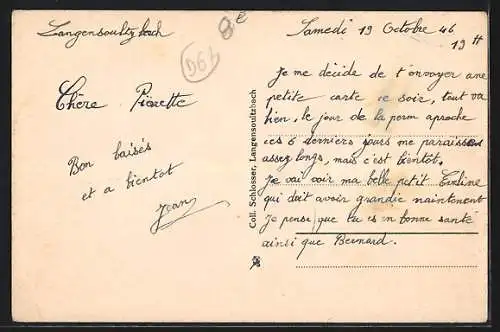 Langensoultzbach
8e
D6b
Samedi 19 Octobre 46
19 H
Chère Pierette
Bon baisés
et a bientot
Jean
Coll. Schlosser, Langensoultzbach
Je me décide de t'envoyer une
petite carte ce soir, tout va
bien, le jour de la perm aproche
ces 6 derniers jours me paraisse
assez longs, mais c'est bientôt.
Je vai voir ma belle petit Eveline
qui doit avoir grandie maintenent
Je pense que tu es en bonne santé
ainsi que Bernard.